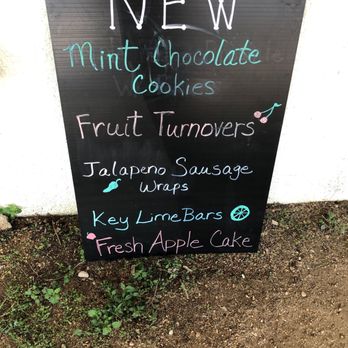 NEW
Mint Chocolate
Cookies
Fruit Turnovers
Jalapeno Sausage
Wraps
Key Lime Bars
Fresh Apple Cake